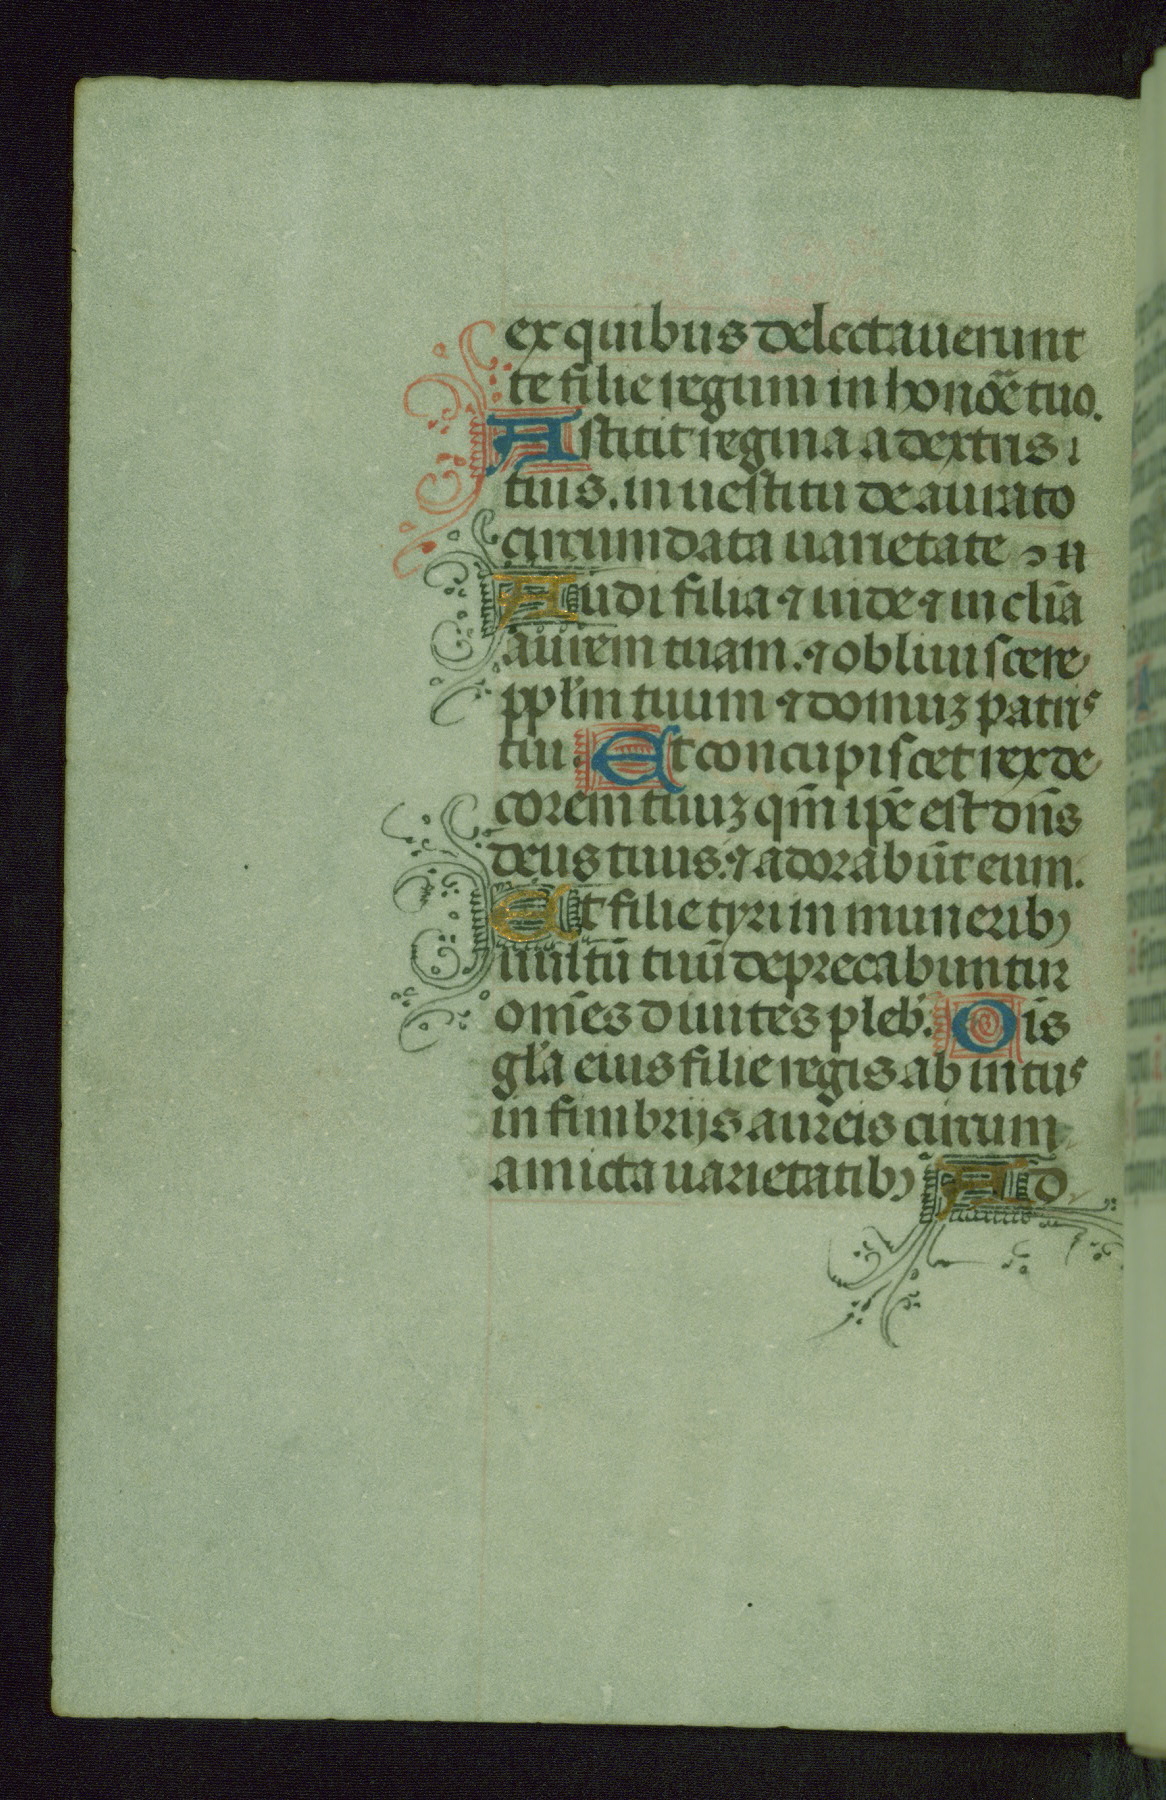 ex quibus delectauerunt
te filie regum in honoꝛ̄e tuo.
Astitit regina a dextris ı
tuis. in uestitu deaurato
circumdata uarietate
Audi filia ⁊ uide ⁊ inclīa
aurem tuam. ⁊ obliuiscere
ppl̄m tuum ⁊ domuꝫ patris
tui. Et concupiscet rex de
corem tuuꝫ qm̄ ip̄e est dn̄s
deus tuus. ⁊ adorabūt eum.
Et filie tyri in muneribꝯ
uultū tuū deprecabuntur
om̄es diuites pleb̄. Oīs
gl̄a eius filie regis ab intus
in fimbrijs aureis circum
amicta uarietatibꝯ Ad